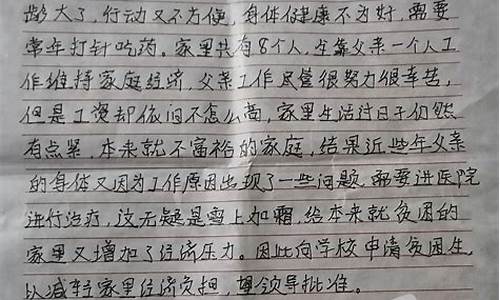 龄大了,行动又不方便,身体健康不为好,需要
常年打针吃药。家里共有8个人,全靠父亲一个人工
作维持家庭经济,父亲工作尽管很努力很辛苦,
但是工资却依旧不怎么高,家里生活过日子仍然
有点紧,本来就不富裕的家庭,结果近些年父亲
的身体又因为工作原因出现了一些问题,需要进医院
进行治疗,这无疑是雪上加霜,给本来就贫困的
家里又增加了经济压力。因此向学校申请贫困生,
以减轻家里经济负担,望领导批准。